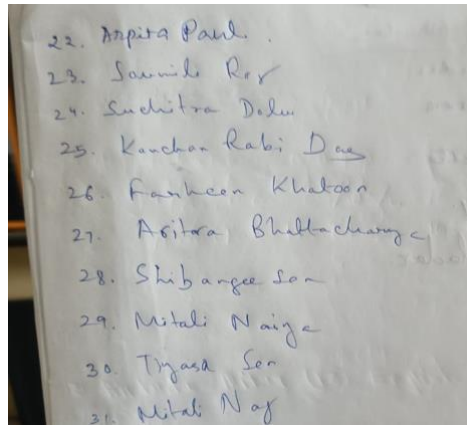 22. Arpita Paul.
23. Soumili Roy
24. Suchitra Dolui
25. Kanchan Rabi Das
26. Farheen Khatoon
27. Aritra Bhattacharya
28. Shibangee Sen
29. Mitali Naiya
30. Tiyasa Sen
31. Mitali Nag